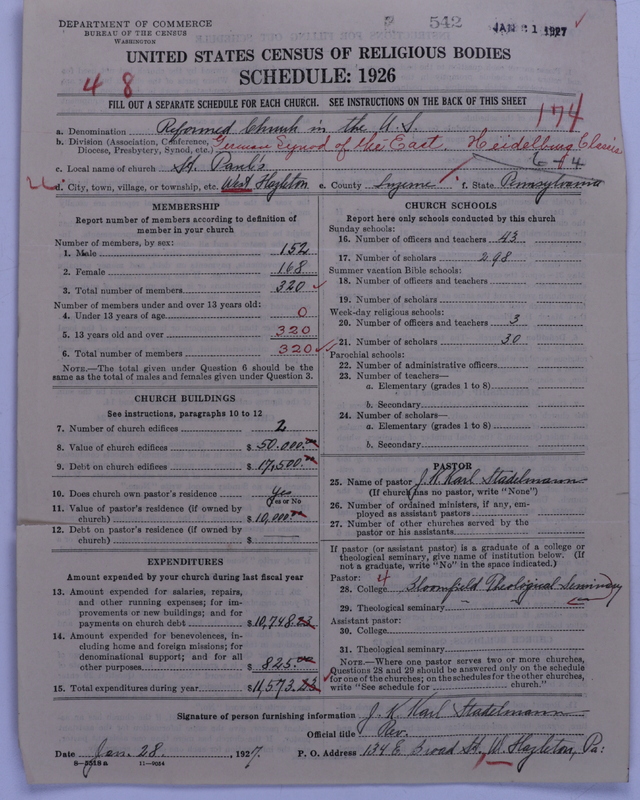 DEPARTMENT OF COMMERCE
BUREAU OF THE CENSUS
WASHINGTON
542
JAN 31 1927
UNITED STATES CENSUS OF RELIGIOUS BODIES
SCHEDULE: 1926
4 8
FILL OUT A SEPARATE SCHEDULE FOR EACH CHURCH. SEE INSTRUCTIONS ON THE BACK OF THIS SHEET
174
a. Denomination Reformed Church in the U.S.
b. Division (Association, Conference, Diocese, Presbytery, Synod, etc.) German Synod of the East, Heidelburg Classis
c. Local name of church St. Paul's
d. City, town, village, or township, etc. West Hazleton e. County Luzerne f. State Pennsylvania
MEMBERSHIP
Report number of members according to definition of
member in your church
Number of members, by sex:
1. Male 152
2. Female 168
3. Total number of members 320
Number of members under and over 13 years old:
4. Under 13 years of age 0
5. 13 years old and over 320
6. Total number of members 320
NOTE.—The total given under Question 6 should be
same as the total of males and females given under Question 3.
CHURCH BUILDINGS
See instructions, paragraphs 10 to 12
7. Number of church edifices 2
8. Value of church edifices $ 50.000.00
9. Debt on church edifices $ 17,500.00
10. Does church own pastor's residence yes
Yes or No
11. Value of pastor's residence (if owned by
church) $ 10,000.00
12. Debt on pastor's residence (if owned by
church) $
EXPENDITURES
Amount expended by church during last fiscal year
13. Amount expended for salaries, repairs,
and other running expenses; for im-
provements or new buildings; and for
payments on church debt $ 10,748.23
14. Amount expended for benevolences, in-
cluding home and foreign missions; for
denominational support; and for all
other purposes $ 825.00
15. Total expenditures during year $ 11,573.23
CHURCH SCHOOLS
Report here only schools conducted by this church
Sunday schools:
16. Number of officers and teachers 43
17. Number of scholars 298
Summer vacation Bible schools:
18. Number of officers and teachers
19. Number of scholars
Week-day religious schools:
20. Number of officers and teachers 3
21. Number of scholars 30
Parochial schools:
22. Number of administrative officers
23. Number of teachers—
a. Elementary (grades 1 to 8)
b. Secondary
24. Number of scholars—
a. Elementary (grades 1 to 8)
b. Secondary
PASTOR
25. Name of pastor J. K. Karl Stadelmann
(If church has no pastor, write "None")
26. Number of ordained ministers, if any, em-
ployed as assistant pastors
27. Number of other churches served by the
pastor or his assistants
If pastor (or assistant pastor) is a graduate of a college or
theological seminary, give name of institution below. (If
not a graduate, write "No" in the space indicated.)
Pastor: 4
28. College Bloomfield Theological Seminary
29. Theological seminary
Assistant pastor:
30. College
31. Theological seminary
NOTE.—Where one pastor serves two or more churches,
Questions 28 and 29 should be answered only on the schedule
for one of the churches; on the schedules for the other churches,
write "See schedule for church."
Signature of person furnishing information J. K. Karl Stadelmann
Official title Rev.
Date Jan. 28, 1927. P. O. Address 134 E. Broad St., W. Hazleton, Pa:
8—5518a 11—9054